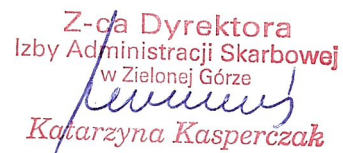 Z-ca Dyrektora
Izby Administracji Skarbowej
w Zielonej Górze
Katarzyna Kasperczak